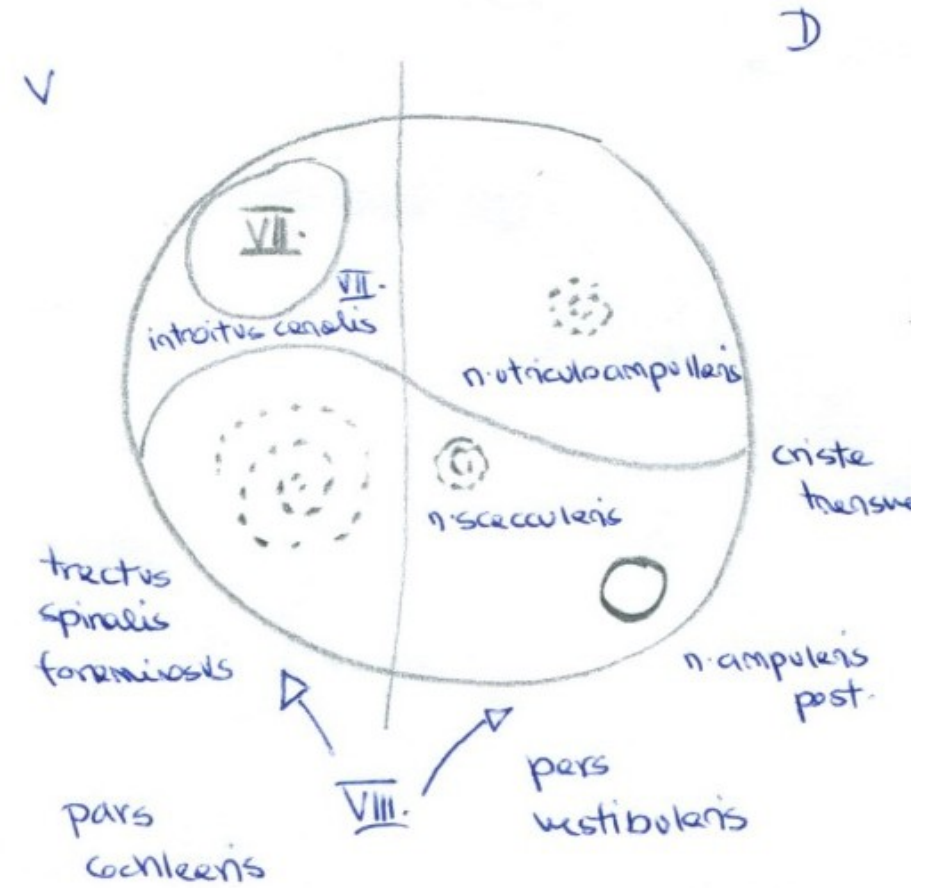 D
V
VII.
VII.
introitus canalis
n.utriculoampullaris
crista
transve
n.saccularis
tractus
spiralis
foraminosus
n.ampularis
post.
VIII.
pars
vestibularis
pars
cochlearis